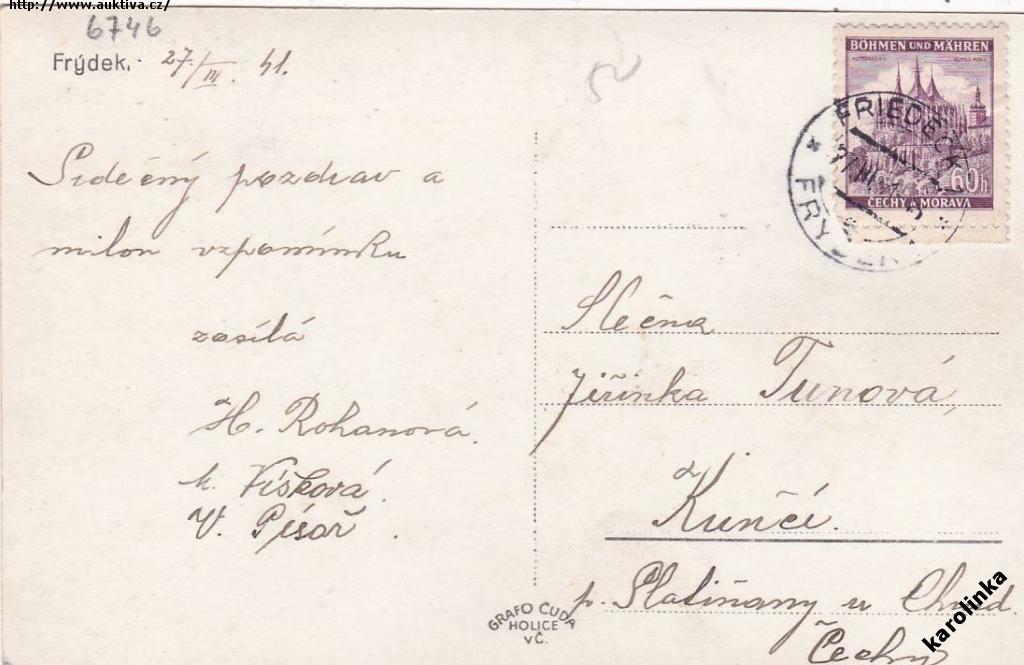 http://www.auktiva.cz/
6746
Frýdek. 27/III. 41.
Srdečný pozdrav a
milou vzpomínku
zasílá
H. Rohanová.
M. Víšková.
V. Písař.
BÖHMEN UND MÄHREN
60h
ČECHY A MORAVA
FRIEDECK
FRÝDEK
Slečna
Jiřinka Tunová,
Kunčí.
p. Slatiňany u Chrud.
Čechy
GRAFO ČUDA
HOLICE
V Č.
karolinka